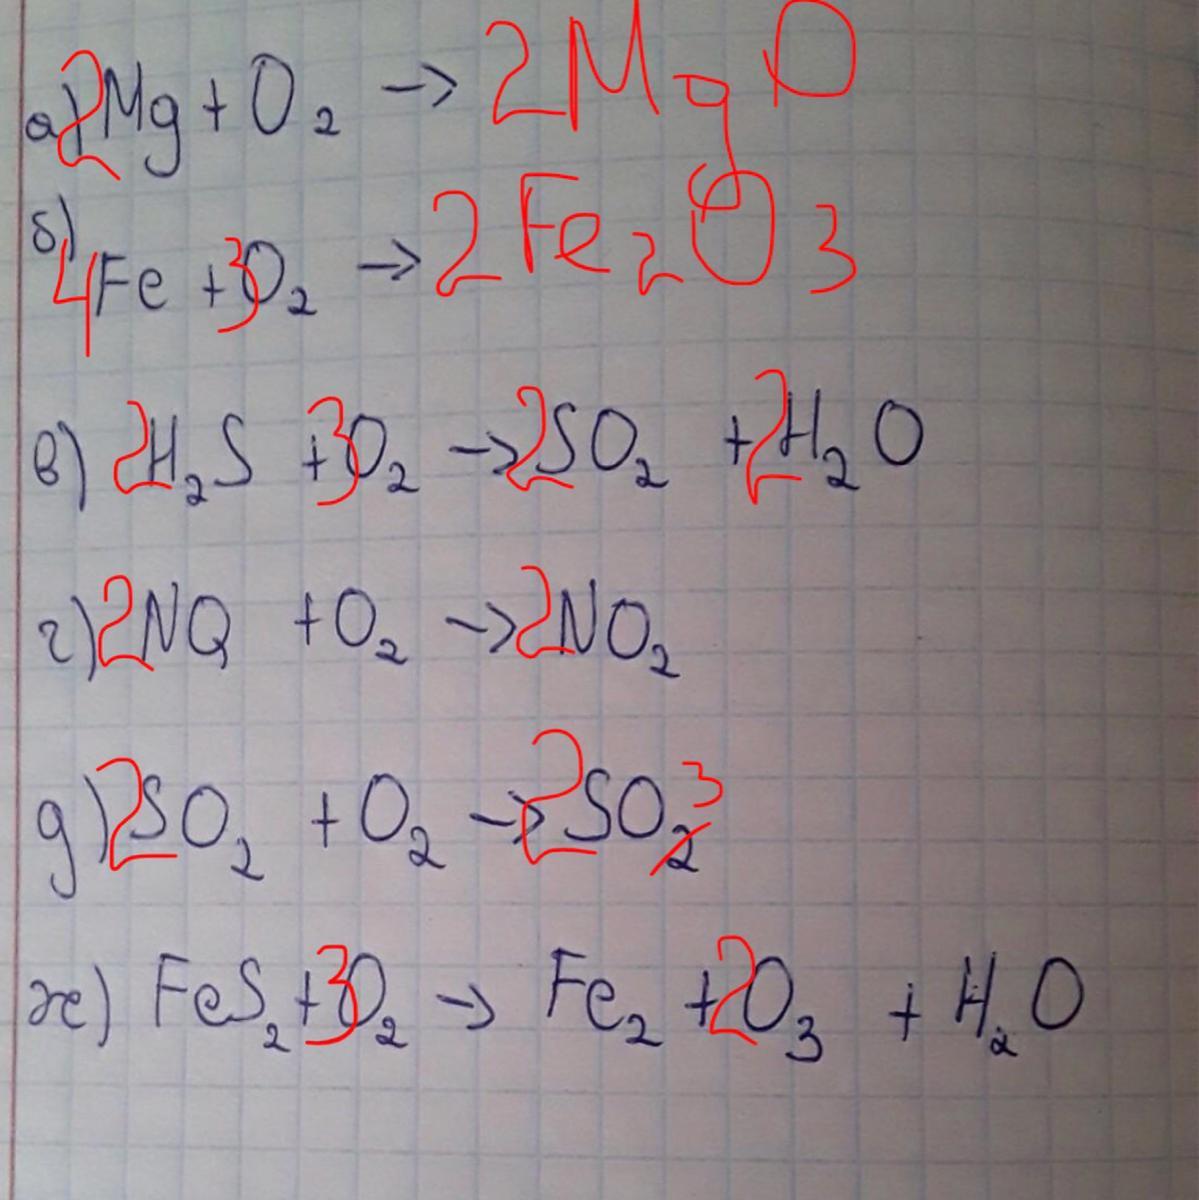 а) 2Mg + O₂ → 2MgO
б) 4Fe + 3O₂ → 2Fe₂O₃
в) 2H₂S + 3O₂ → 2SO₂ + 2H₂O
г) 2NO + O₂ → 2NO₂
д) 2SO₂ + O₂ → 2SO₂ 3
ж) FeS₂ + 3O₂ → Fe₂ + 2O₃ + H₂O